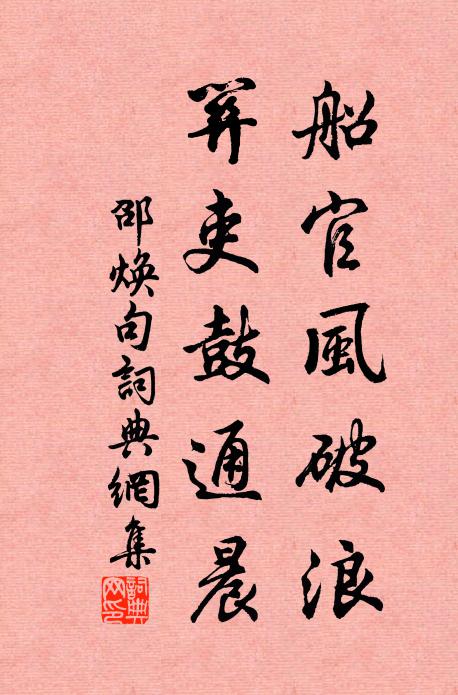 船官風破浪
吏鼓通晨
邵焕句詞典網集
詞典
网印